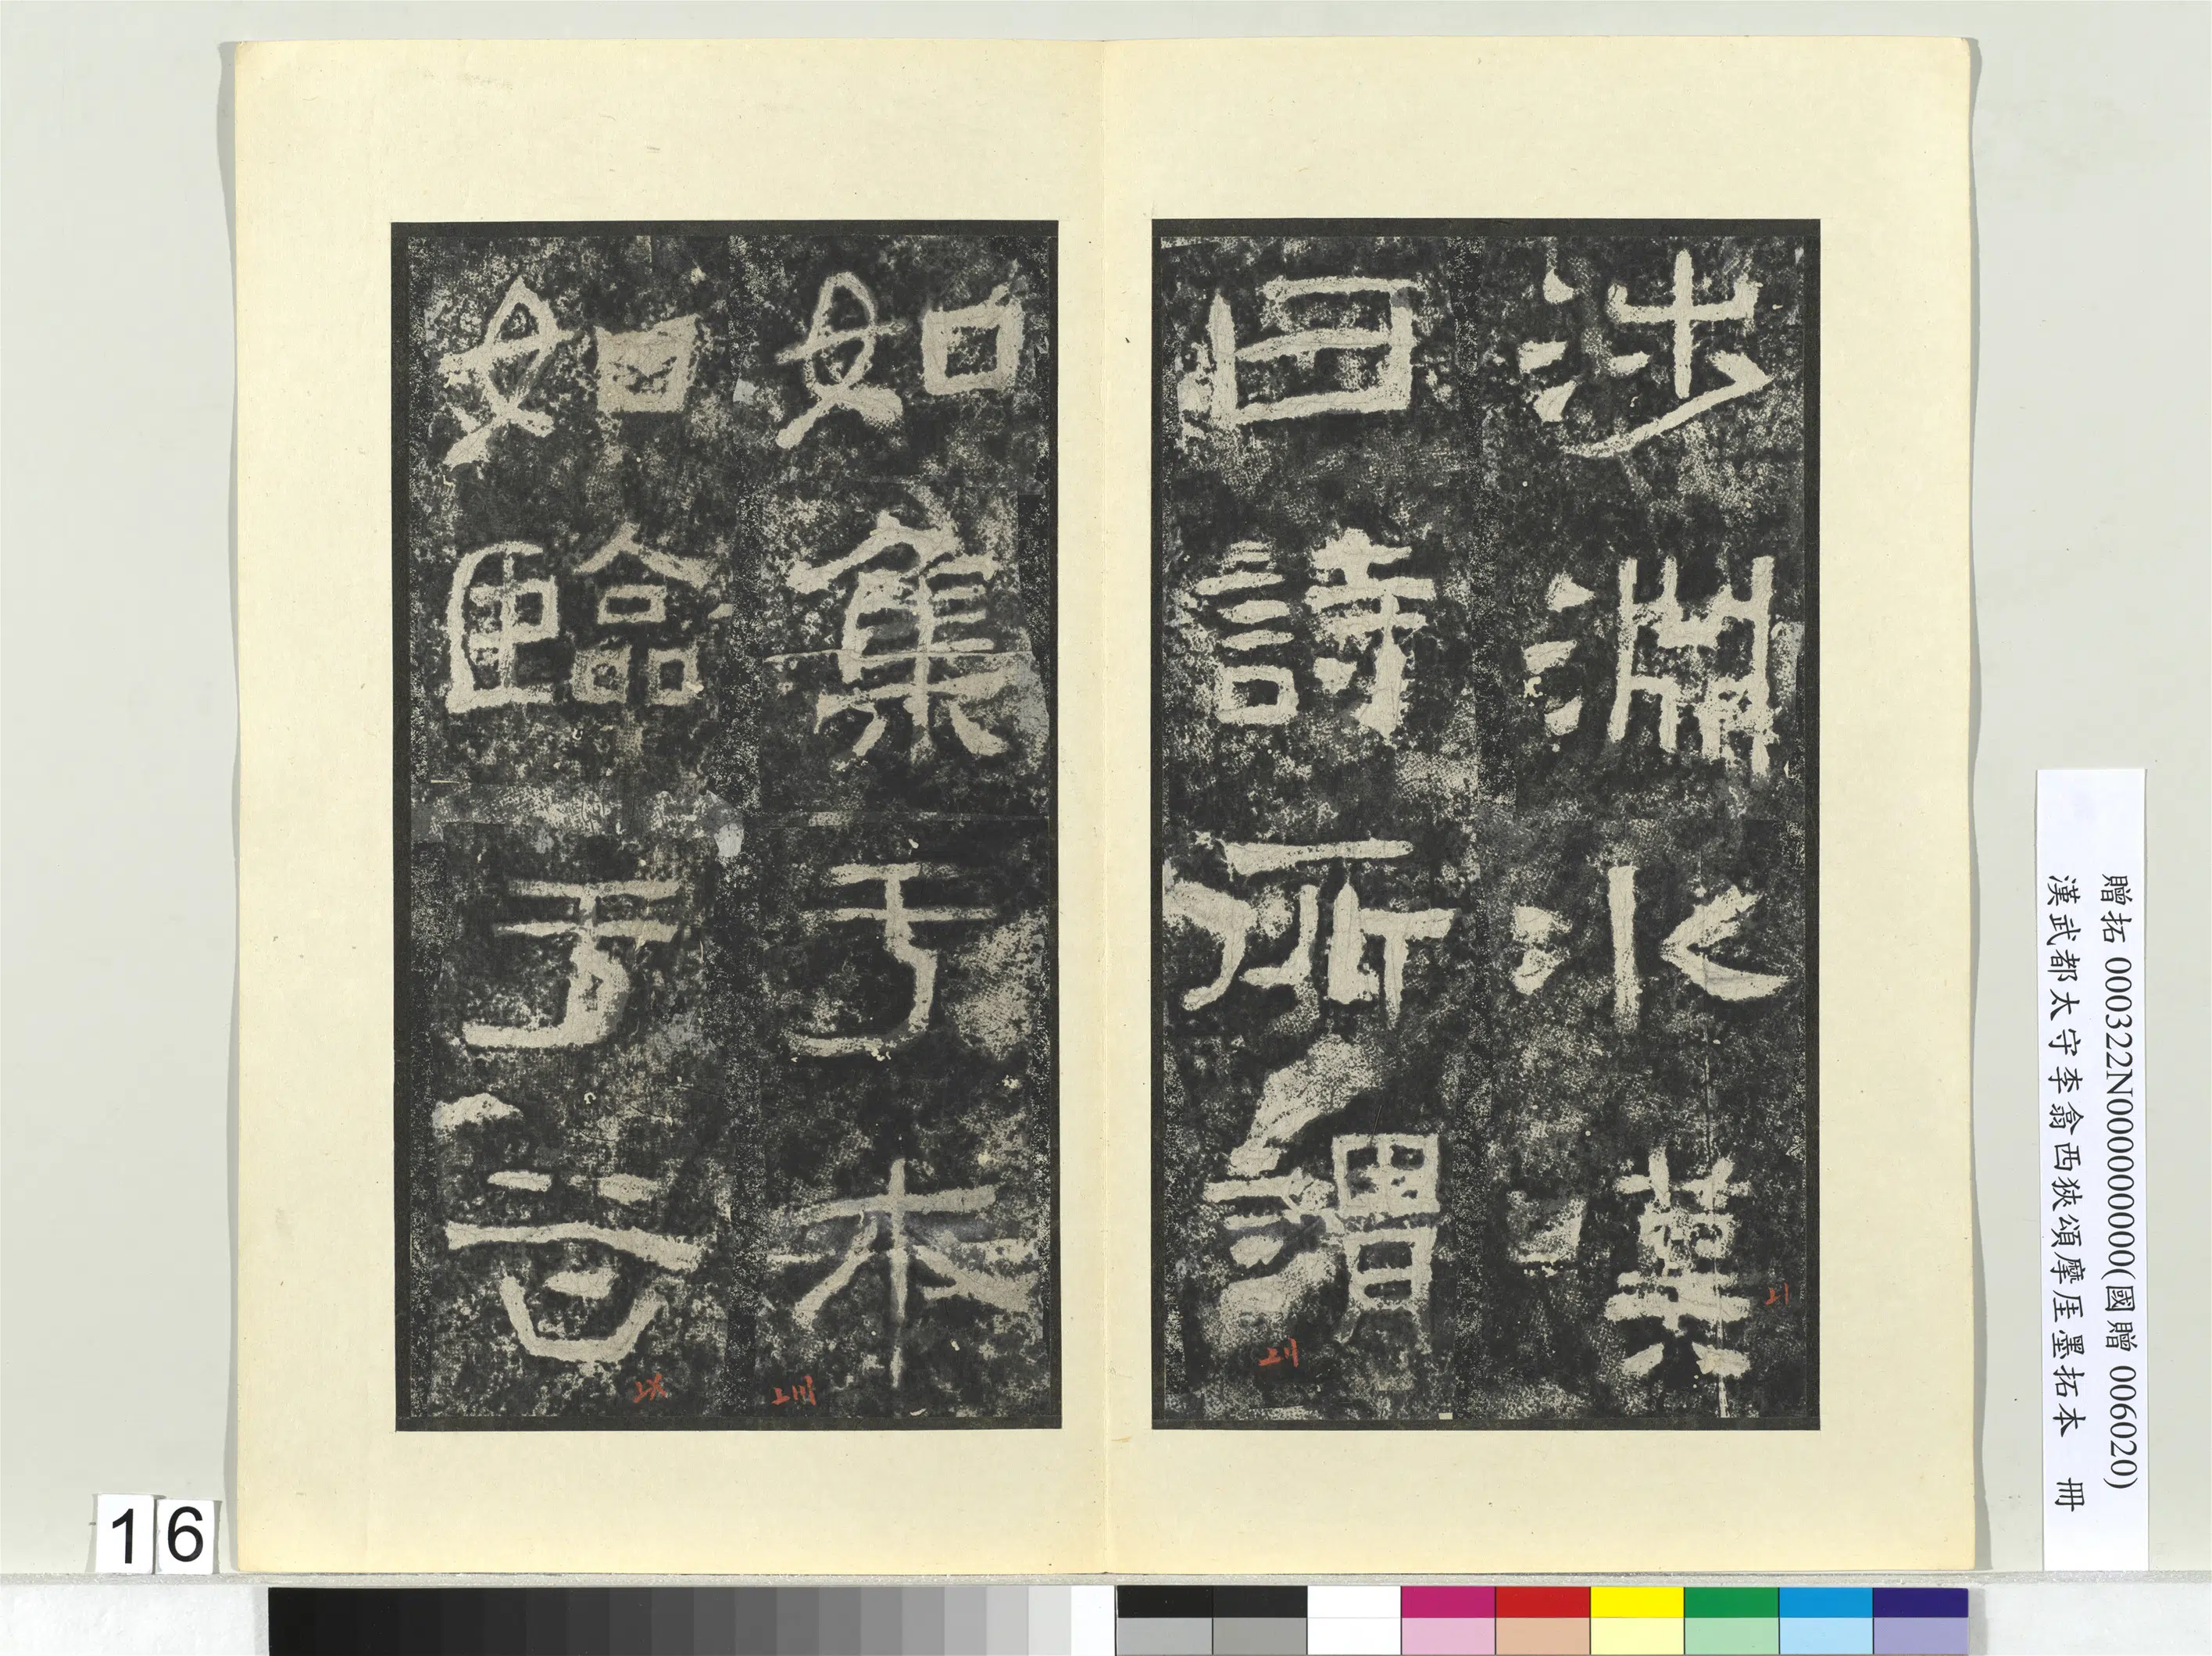 涉淵冰嘆
曰詩所謂
如集于木
如臨于谷
贈拓 000322N000000000(國贈 006020)
漢武都太守李翕西狹頌摩厓墨拓本 冊
16